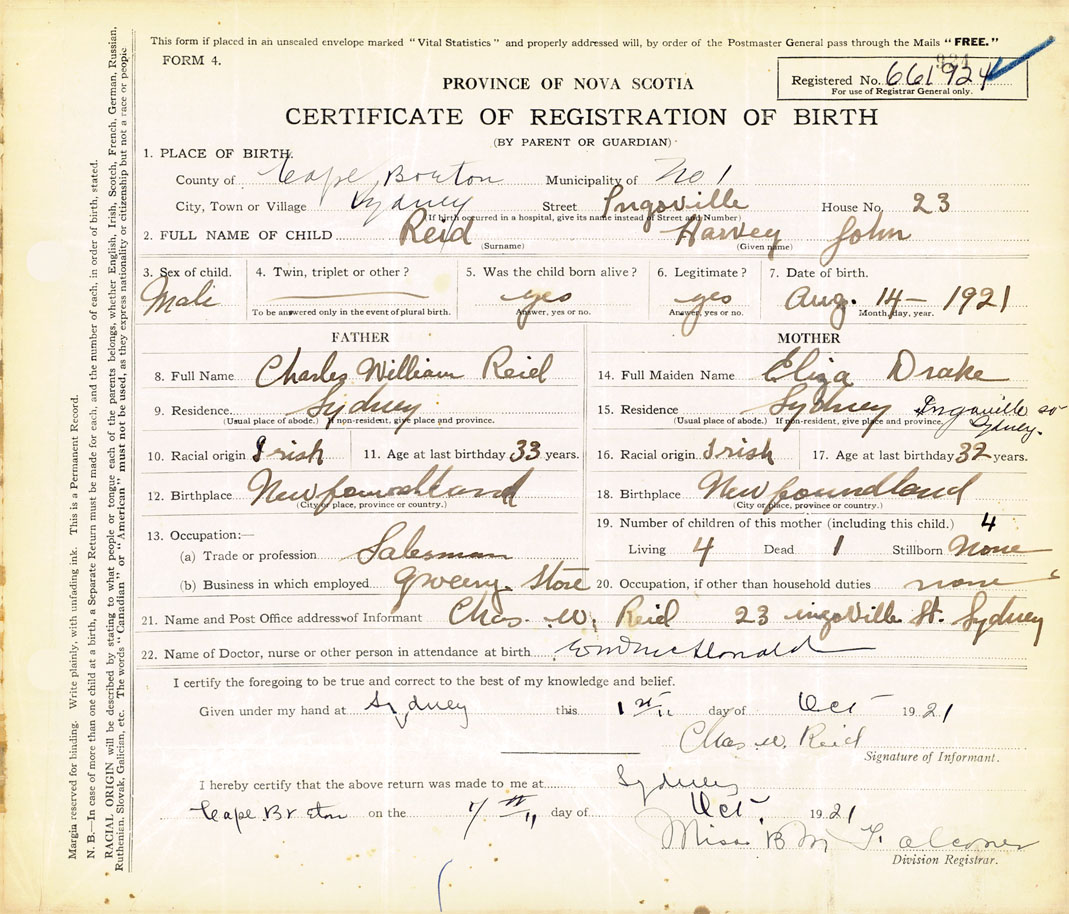 This form if placed in an unsealed envelope marked "Vital Statistics" and properly addressed will, by order of the Postmaster General pass through the Mails "FREE."
FORM 4.
PROVINCE OF NOVA SCOTIA
Registered No. 661924
For use of Registrar General only.
CERTIFICATE OF REGISTRATION OF BIRTH
(BY PARENT OR GUARDIAN)
1. PLACE OF BIRTH.
County of Cape Breton Municipality of No 1
City, Town or Village Sydney Street Ingoville House No. 23
(If birth occurred in a hospital, give its name instead of Street and Number)
2. FULL NAME OF CHILD Reid Harvey John
(Surname) (Given name)
3. Sex of child. 4. Twin, triplet or other? 5. Was the child born alive? 6. Legitimate? 7. Date of birth.
Male yes yes Aug. 14 - 1921
To be answered only in the event of plural birth. Answer, yes or no. Answer, yes or no. Month, day, year.
FATHER
8. Full Name Charles William Reid
9. Residence Sydney
(Usual place of abode.) If non-resident, give place and province.
10. Racial origin Irish 11. Age at last birthday 33 years.
12. Birthplace Newfoundland
(City or place, province or country.)
13. Occupation:—
(a) Trade or profession Salesman
(b) Business in which employed Grocery Store
MOTHER
14. Full Maiden Name Eliza Drake
15. Residence Sydney Ingoville St Sydney.
(Usual place of abode.) If non-resident, give place and province.
16. Racial origin Irish 17. Age at last birthday 32 years.
18. Birthplace Newfoundland
(City or place, province or country.)
19. Number of children of this mother (including this child.) 4
Living 4 Dead 1 Stillborn None
20. Occupation, if other than household duties none
21. Name and Post Office address of Informant Chas. W. Reid 23 ingoville St. Sydney
22. Name of Doctor, nurse or other person in attendance at birth McDonald
I certify the foregoing to be true and correct to the best of my knowledge and belief.
Given under my hand at Sydney this 1st day of Oct 1921
Chas. W. Reid
Signature of Informant.
I hereby certify that the above return was made to me at Sydney
Cape Breton on the 7th day of Oct. 1921
Miss B M Falconer
Division Registrar.
Margin reserved for binding. Write plainly, with unfading ink. This is a Permanent Record.
N. B.—In case of more than one child at a birth, a Separate Return must be made for each, and the number of each, in order of birth, stated.
RACIAL ORIGIN will be described by stating to what people or tongue each of the parents belongs, whether English, Irish, Scotch, French, German, Russian,
Ruthenian, Slovak, Galician, etc. The words "Canadian" or "American" must not be used, as they express nationality or citizenship but not a race or people